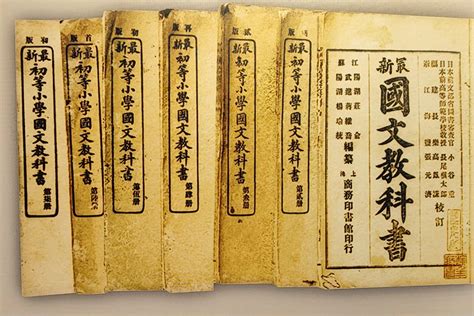 日本前文部省圖書審查官 小谷重
日本前高等師範學校教授 長尾太郎
福建長樂 高鳳謙
浙江海鹽 張元濟
校訂
最新
國文教科書
江
陽湖莊俞
武進蔣維喬編纂
蘇陽湖楊瑜統
上海商務印書館印行
版
最新
初等小學國文教科書
第貳册
貳版
最新
初等小學國文教科書
第叁册
再版
最新
初等小學國文教科書
第肆册
初版
最新
初等小學國文教科書
第伍册
首版
最新
初等小學國文教科書
第陸册
初版
最新
初等小學國文教科書
第柒册